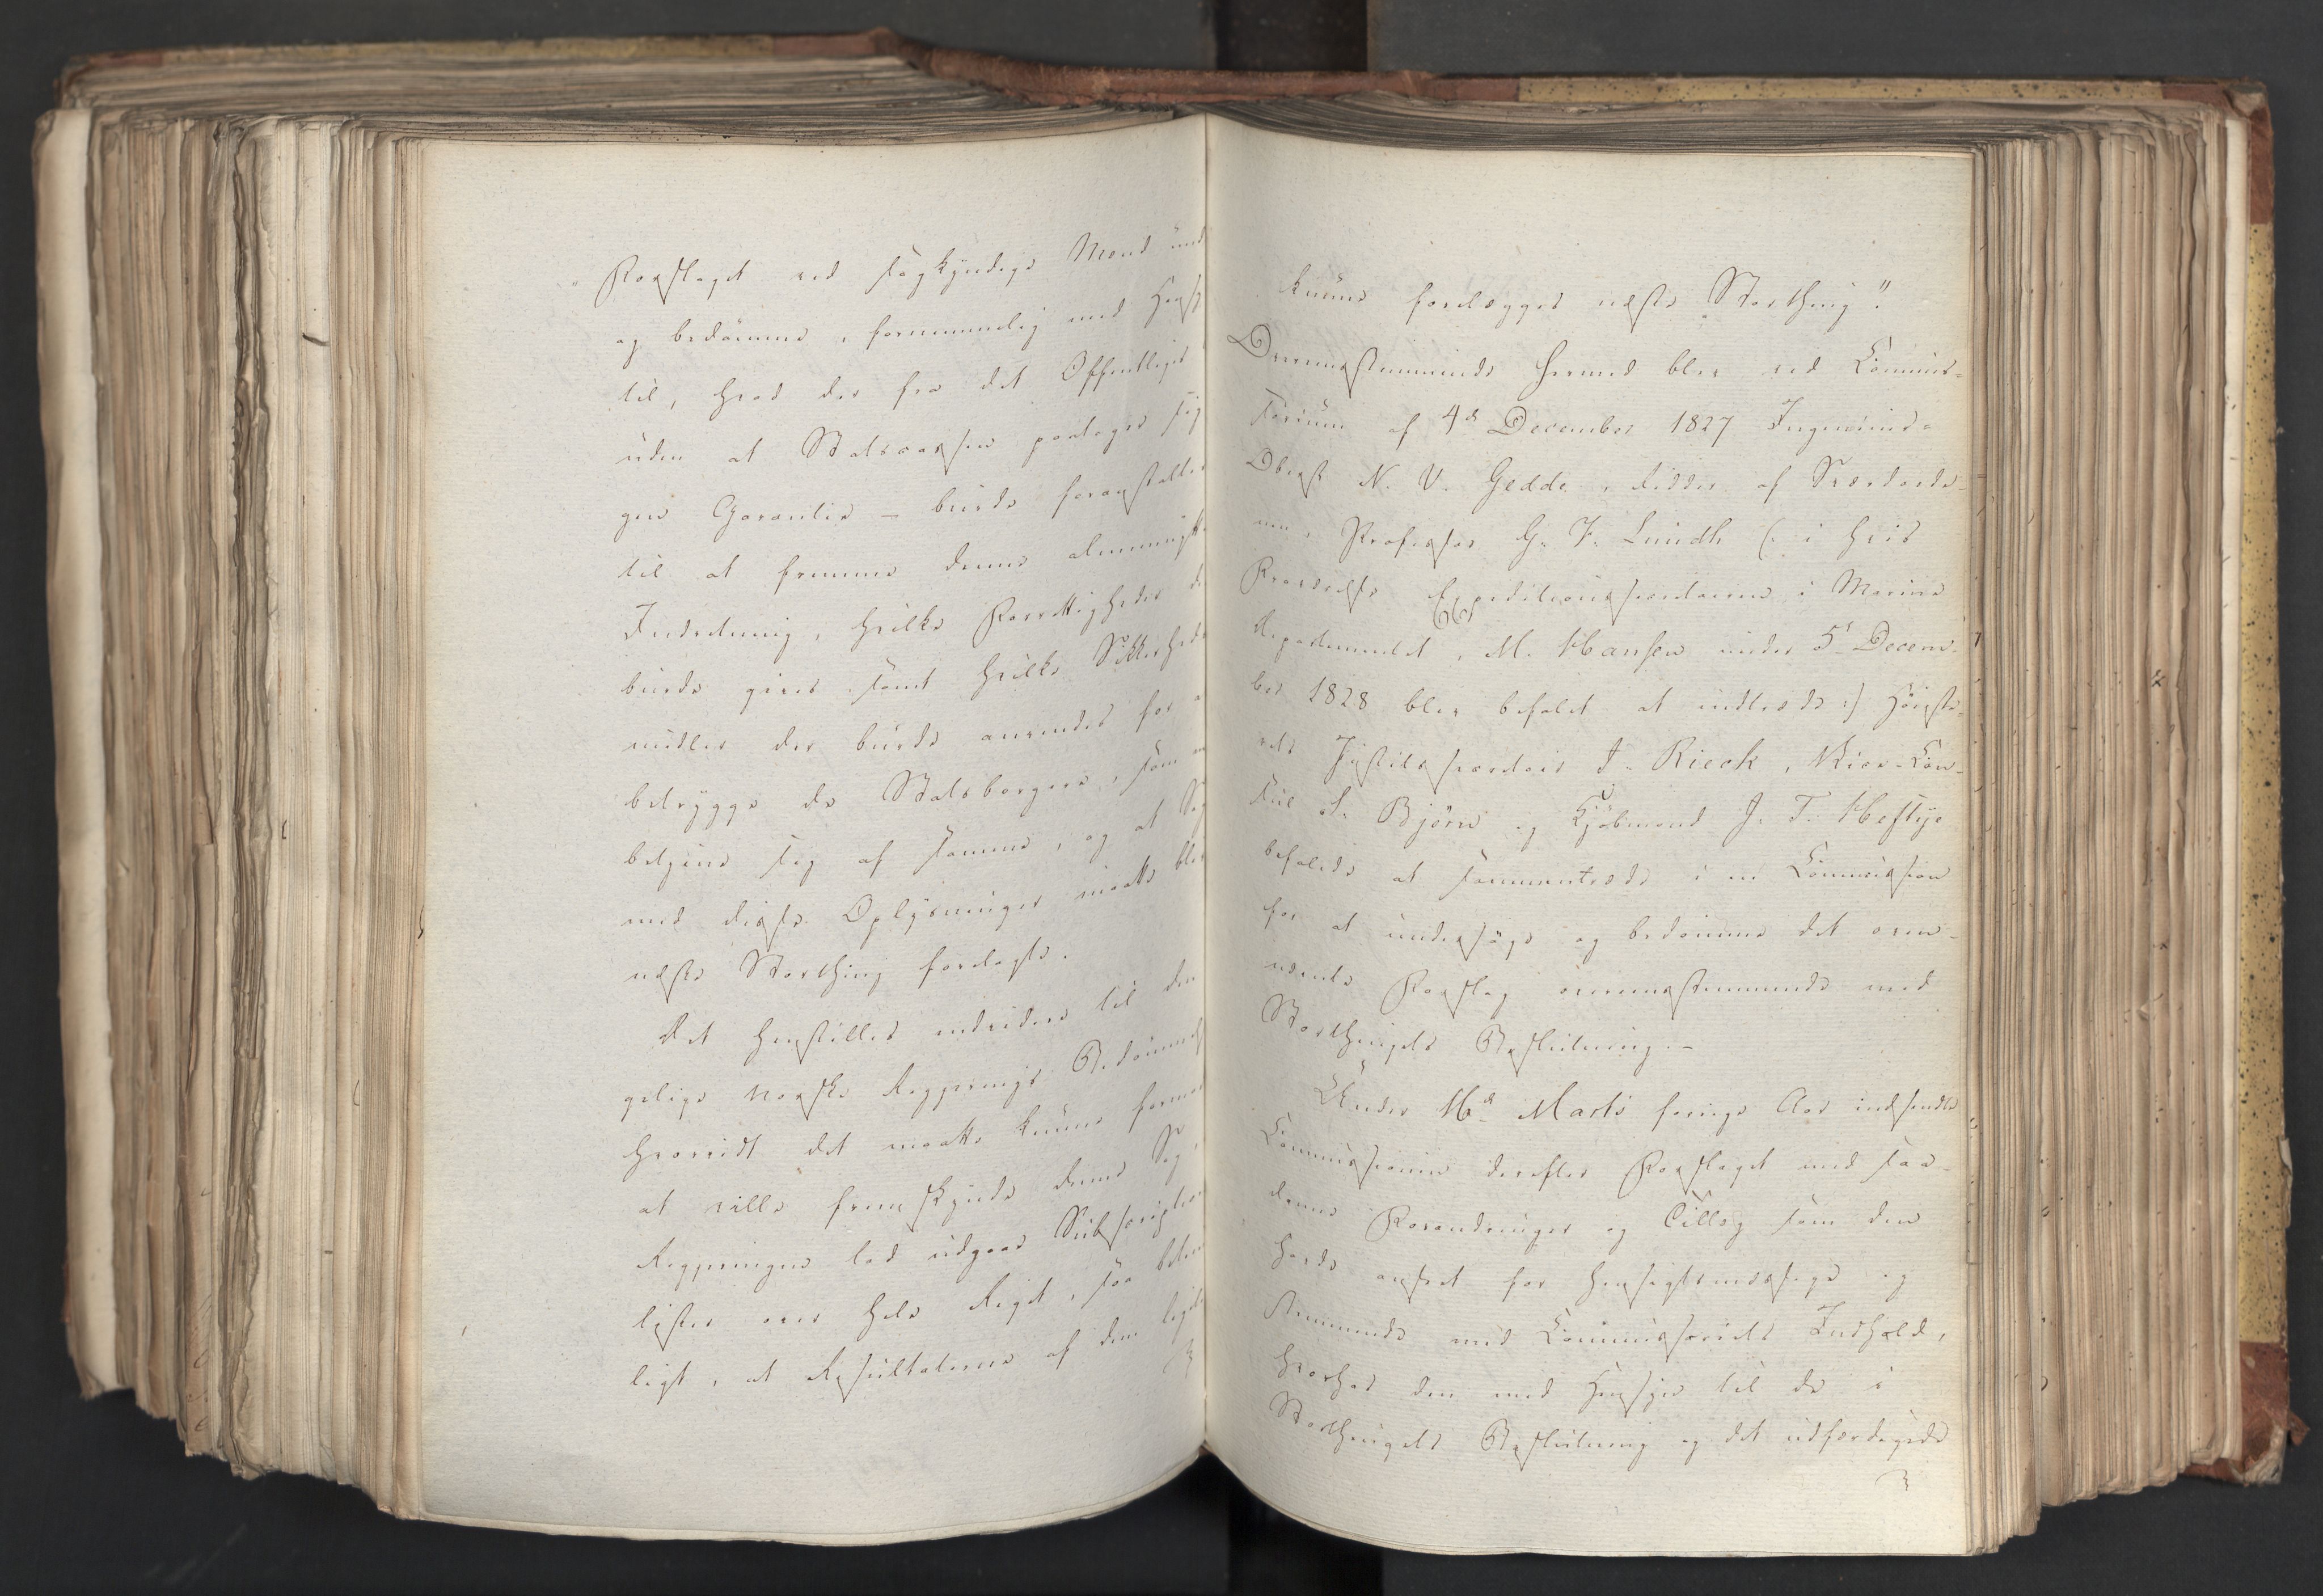 „Forslaget ved sagkyndige Mænd und
og bedømme, fornemmelig med Hensy
til, hvad der fra det Offentliges
uden at Statscassen paatages sig
gen Garantie – burde foranstaltes
til at fremme denne almeennytt
Indretning, hvilke Forrettigheder d
burde gives samt hvilke Sikkerheds
midler der burde anvendes for a
betrygge de Statsborgere, som
betjene sig af samme, og at Sag
med disse Oplysninger maatte bliv
næste Storthing forelagte.
Det henstilles endvidere til den
gelige norske Regjerings Bedømmels
hvorvidt det maatte kunne formod
at ville fremskynde denne Sag,
Regjeringen lod udgaae Subscription
lister over hele Riget, saa betim
ligt, at Resultaterne af dem lige
kunne forelægges næste Storthing".
Overeensstemmende hermed blev ved Commis-
sorium af 4de December 1827 Ingenieur-
Oberst N. V. Gedde, Ridder af Sværdorde-
nen, Professor G. F. Lundh (: i hvis
Frardelse Expeditionssecretairen i Marine
Departementet, M. Hansen under 5te Decem-
ber 1828 blev befalet at indtræde :) Høieste-
rets Justitssecretair J. Rieck, Vice-Con-
sul S. Bjørn og Kjøbmand J. T. Heftye
befalede at sammentræde i en Commission
for at undersøge og bedømme det oven-
nævnte Forslag overeensstemmende med
Storthingets Beslutning. –
Under 16de Marts forrige Aar indsendte
Commissionen derefter Forslaget med saa-
danne Forandringer og Tillæg som den
havde anseet for hensigtsmæssige og
stemmende med Commissoriets Indhold,
hvorhos den med Hensyn til de i
Storthingets Beslutning og det udfærdigede